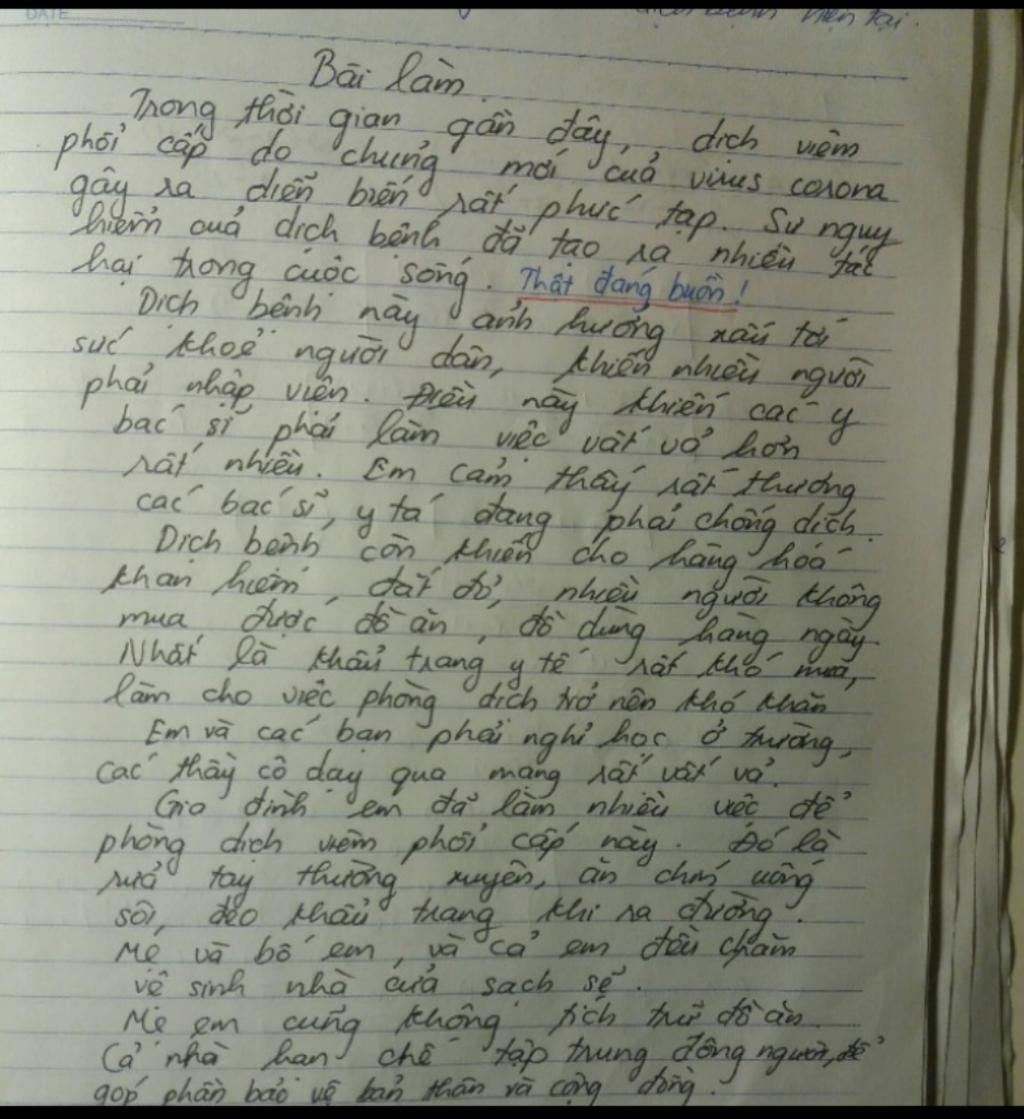 DATE
dịch bệnh hiện tại.
Bài làm.
Trong thời gian gần đây, dịch viêm
phổi cấp do chủng mới của virus corona
gây ra diễn biến rất phức tạp. Sự nguy
hiểm của dịch bệnh đã tạo ra nhiều tác
hại trong cuộc sống. Thật đáng buồn!
Dịch bệnh này ảnh hưởng xấu tới
sức khoẻ người dân, khiến nhiều người
phải nhập viện. Điều này khiến các y
bác sĩ phải làm việc vất vả hơn
rất nhiều. Em cảm thấy rất thương
các bác sĩ, y tá đang phải chống dịch.
Dịch bệnh còn khiến cho hàng hoá
khan hiếm, đắt đỏ, nhiều người không
mua được đồ ăn, đồ dùng hàng ngày.
Nhất là khẩu trang y tế rất khó mua,
làm cho việc phòng dịch trở nên khó khăn
Em và các bạn phải nghỉ học ở trường,
các thầy cô dạy qua mạng rất vất vả.
Gia đình em đã làm nhiều việc để
phòng dịch viêm phổi cấp này. Đó là
rửa tay thường xuyên, ăn chín uống
sôi, đeo khẩu trang khi ra đường.
Mẹ và bố em, và cả em đều chăm
vệ sinh nhà cửa sạch sẽ.
Mẹ em cũng không tích trữ đồ ăn.
Cả nhà hạn chế tập trung đông người, để
góp phần bảo vệ bản thân và cộng đồng.